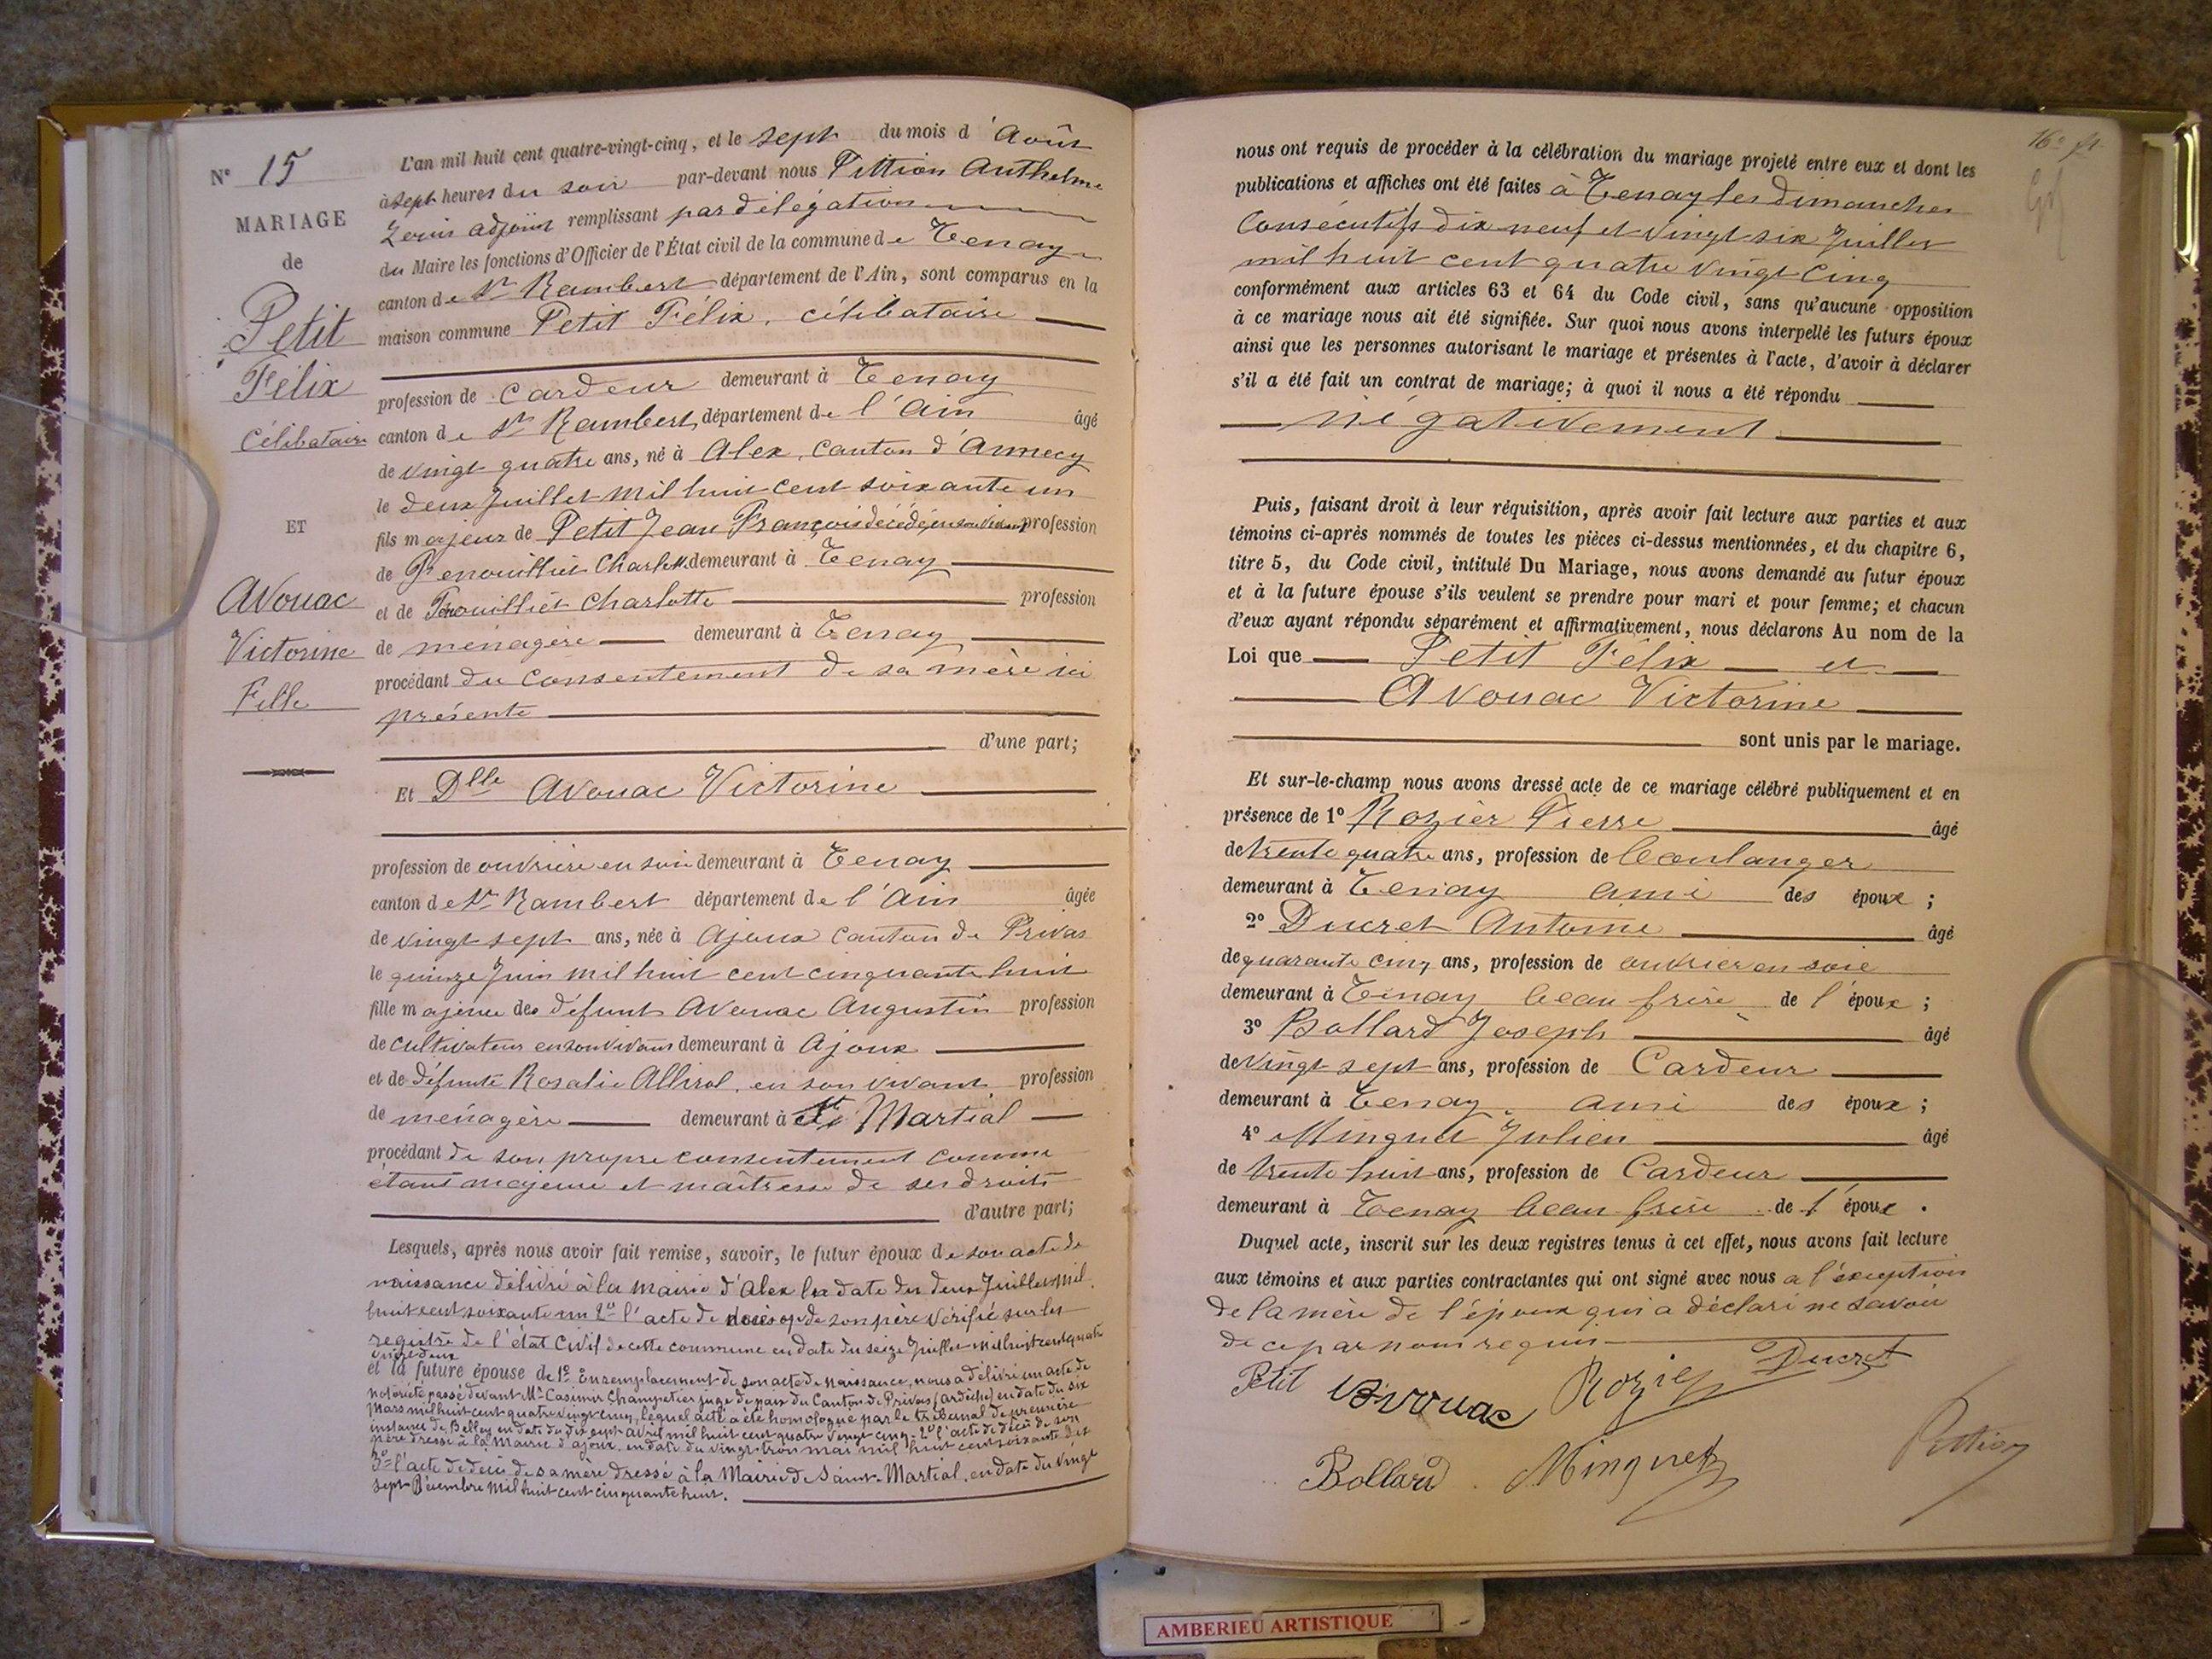 N° 15
MARIAGE
de
Petit
Félix
Célibataire
ET
Avouac
Victorine
Fille
L'an mil huit cent quatre-vingt-cinq, et le sept du mois d'Août
à sept heures du soir par-devant nous Pittion Anthelme
Louis adjoint remplissant par délégation
du Maire les fonctions d'Officier de l'État civil de la commune de Tenay
canton de St Rambert département de l'Ain, sont comparus en la
maison commune Petit Félix, célibataire
profession de Cardeur demeurant à Tenay
canton de St Rambert, département de l'Ain âgé
de vingt quatre ans, né à Alex, Canton d'Annecy
le deux Juillet mil huit cent soixante un
fils majeur de Petit Jean François décédé, en son vivant profession
de demeurant à Tenay
et de Charlotte profession
de ménagère demeurant à Tenay
procédant du consentement de sa mère ici
présente
d'une part;
Et Dlle Avouac Victorine
profession de ouvrière en soie demeurant à Tenay
canton de St Rambert département de l'Ain âgée
de vingt sept ans, née à Ajoux canton de Privas
le quinze Juin mil huit cent cinquante huit
fille majeure des défunt Avouac Augustin profession
de cultivateur en son vivant demeurant à Ajoux
et de défunte Rosalie en son vivant profession
de ménagère demeurant à St Martial
procédant de son propre consentement comme
étant majeure et maîtresse de ses droits
d'autre part;
Lesquels, après nous avoir fait remise, savoir, le futur époux de son acte de
naissance délivré à la mairie d'Alex la date du deux Juillet mil
huit cent soixante un 2° l'acte de décès de son père vérifié sur les
registre de l'état civil de cette commune en date du seize Juillet mil huit cent quatre
vingt deux
et la future épouse de 1° En remplacement de son acte de naissance, nous a délivré un acte de
notoriété passé devant Mr Casimir Champetier juge de paix du Canton de Privas (ardèche) en date du six
Mars mil huit cent quatre vingt cinq, lequel acte a été homologué par le tribunal de première
instance de Belley en date du dix sept avril mil huit cent quatre vingt cinq - 2° l'acte de décès de son
père dressé à la Mairie d'ajoux, en date du vingt trois mai mil huit cent soixante dix
3° l'acte de décès de sa mère dressé à la Mairie de Saint-Martial, en date du vingt
sept Décembre mil huit cent cinquante huit.
nous ont requis de procéder à la célébration du mariage projeté entre eux et dont les
publications et affiches ont été faites à Tenay les dimanches
Consécutifs dix neuf et vingt six Juillet
mil huit cent quatre vingt cinq
conformément aux articles 63 et 64 du Code civil, sans qu'aucune opposition
à ce mariage nous ait été signifiée. Sur quoi nous avons interpellé les futurs époux
ainsi que les personnes autorisant le mariage et présentes à l'acte, d'avoir à déclarer
s'il a été fait un contrat de mariage; à quoi il nous a été répondu
négativement
Puis, faisant droit à leur réquisition, après avoir fait lecture aux parties et aux
témoins ci-après nommés de toutes les pièces ci-dessus mentionnées, et du chapitre 6,
titre 5, du Code civil, intitulé Du Mariage, nous avons demandé au futur époux
et à la future épouse s'ils veulent se prendre pour mari et pour femme; et chacun
d'eux ayant répondu séparément et affirmativement, nous déclarons Au nom de la
Loi que Petit Félix et
Avouac Victorine
sont unis par le mariage.
Et sur-le-champ nous avons dressé acte de ce mariage célébré publiquement et en
présence de 1° Rozier Pierre âgé
de trente quatre ans, profession de boulanger
demeurant à Tenay ami des époux ;
2° Ducret Antoine âgé
de quarante cinq ans, profession de ouvrier en soie
demeurant à Tenay beau frère de l'époux ;
3° Bollard Joseph âgé
de vingt sept ans, profession de Cardeur
demeurant à Tenay, ami des époux ;
4° Minguet Julien âgé
de trente huit ans, profession de Cardeur
demeurant à Tenay beau frère de l'époux .
Duquel acte, inscrit sur les deux registres tenus à cet effet, nous avons fait lecture
aux témoins et aux parties contractantes qui ont signé avec nous a l'exception
de la mère de l'époux qui a déclaré ne savoir
de ce par nous requis
Petit Avouac Rozier Ducret
Bollard Minguet Pittion
AMBERIEU ARTISTIQUE